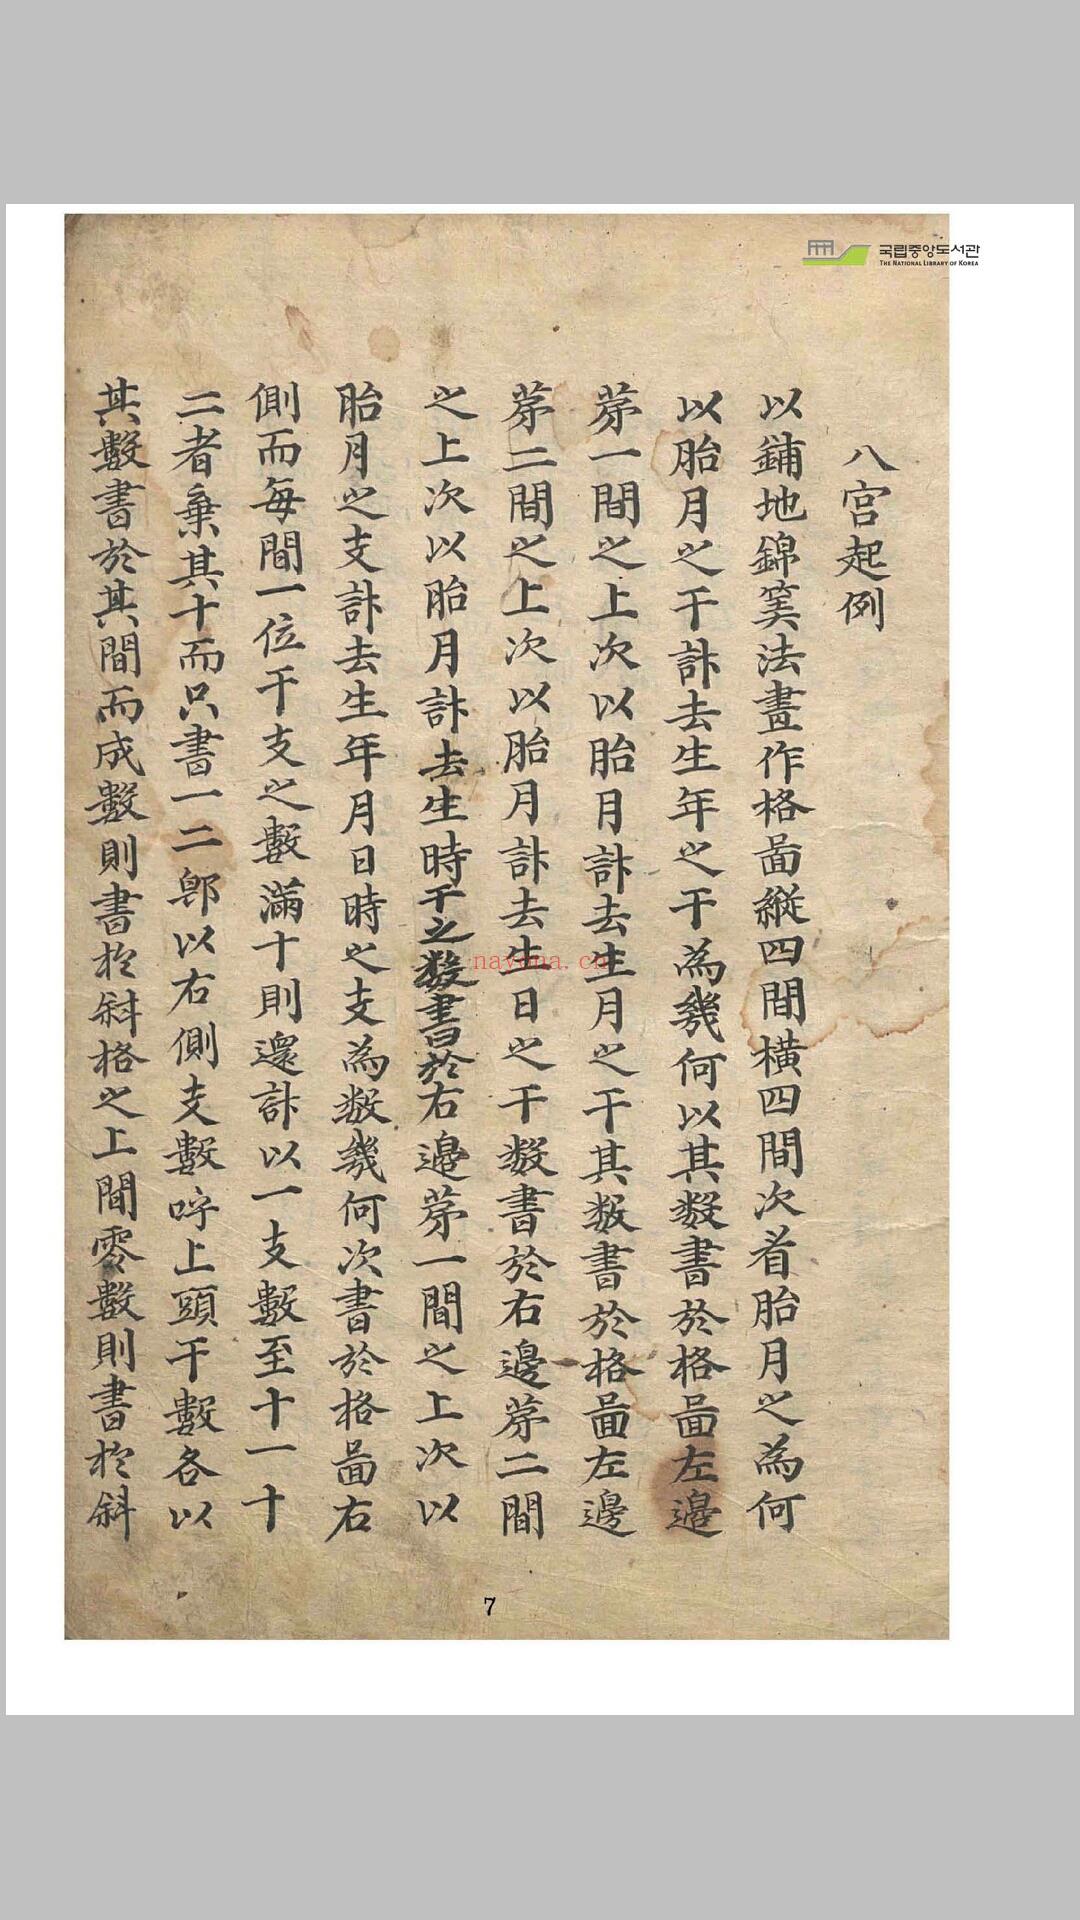 국립중앙도서관
THE NATIONAL LIBRARY OF KOREA
八宮起例
以鋪地錦筭法畫作格啚縱四間橫四間次看胎月之為何
以胎月之干計去生年之干為幾何以其数書於格啚左邊
茅一間之上次以胎月計去生月之干其数書於格啚左邊
茅二間之上次以胎月計去生日之干数書於右邊茅二間
之上次以胎月計去生時干之数書於右邊茅一間之上次以
胎月之支計去生年月日時之支為数幾何次書於格啚右
側而每間一位干支之數滿十則還計以一支數至十一十
二者棄其十而只書一二郎以右側支數呼上頭干數各以
其數書於其間而成數則書於斜格之上間零數則書於斜
nayona.cn
7